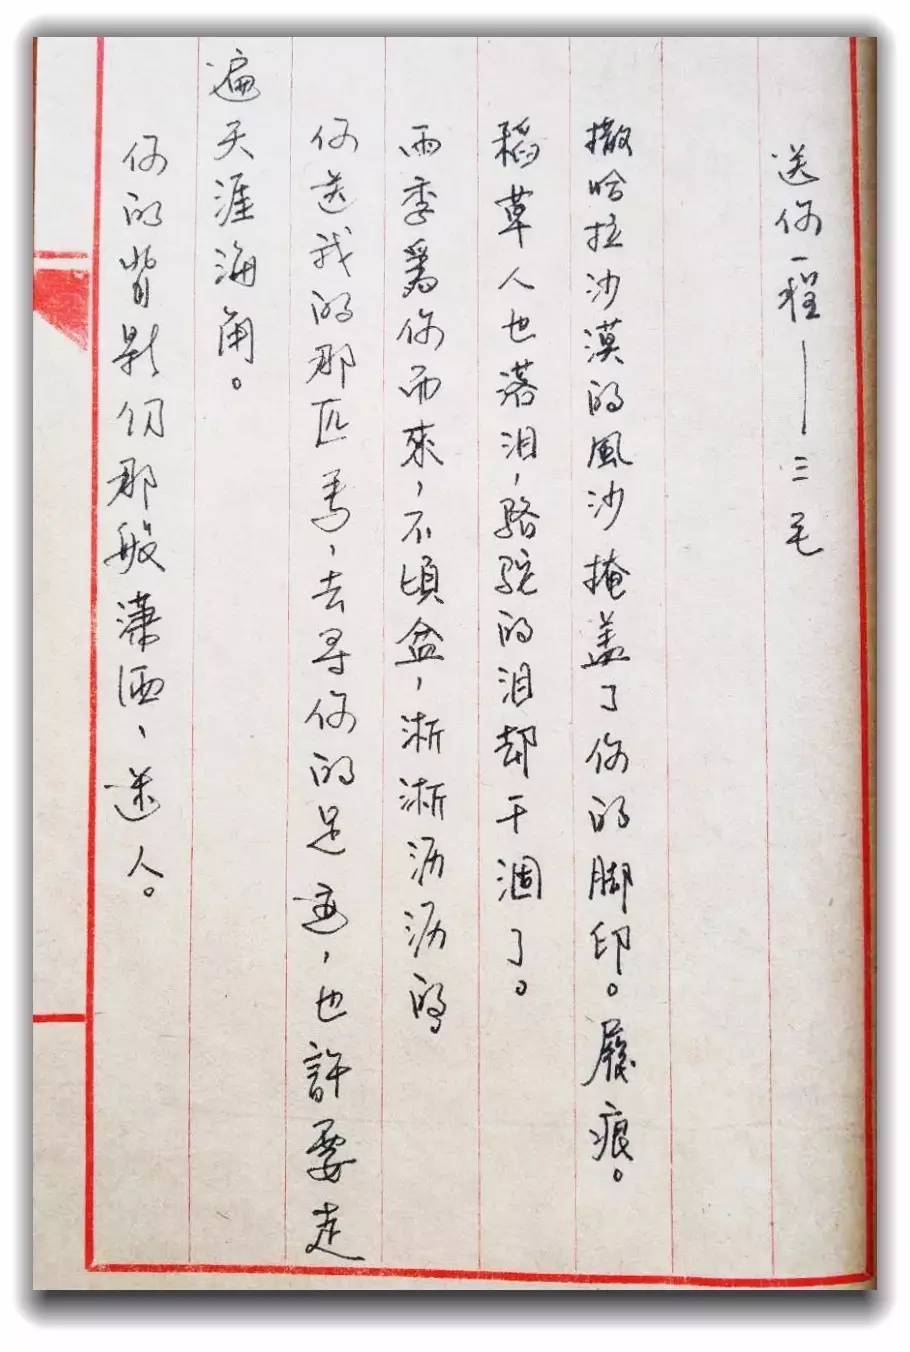 送你一程——三毛
撒哈拉沙漠的風沙掩盖了你的脚印。屐痕。
稻草人也落泪，骆驼的泪却干涸了。
雨季為你而來，不傾盆，淅淅沥沥的
你送我的那匹馬，去尋你的足迹，也許要走
遍天涯海角。
你的背影仍那般潇洒、迷人。